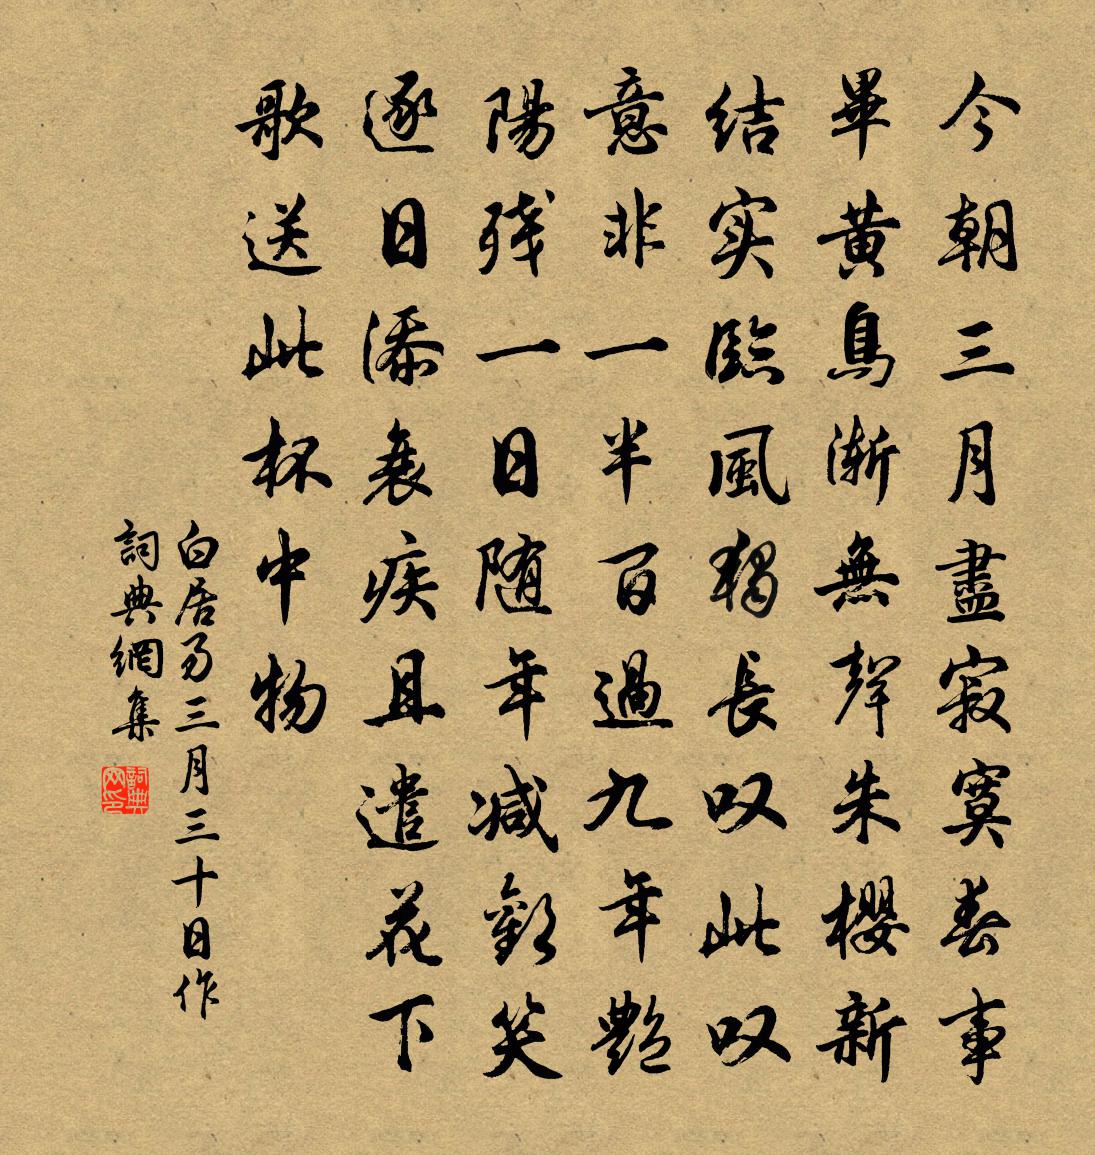 今朝三月盡寂寞春事
畢黃鳥漸無聲朱櫻新
结实臨風獨長叹此叹
意非一半百過九年艷
陽残一日随年减歡笑
逐日添衰疾且遣花下
歌送此杯中物
白居易三月三十日作
詞典網集
詞典网印